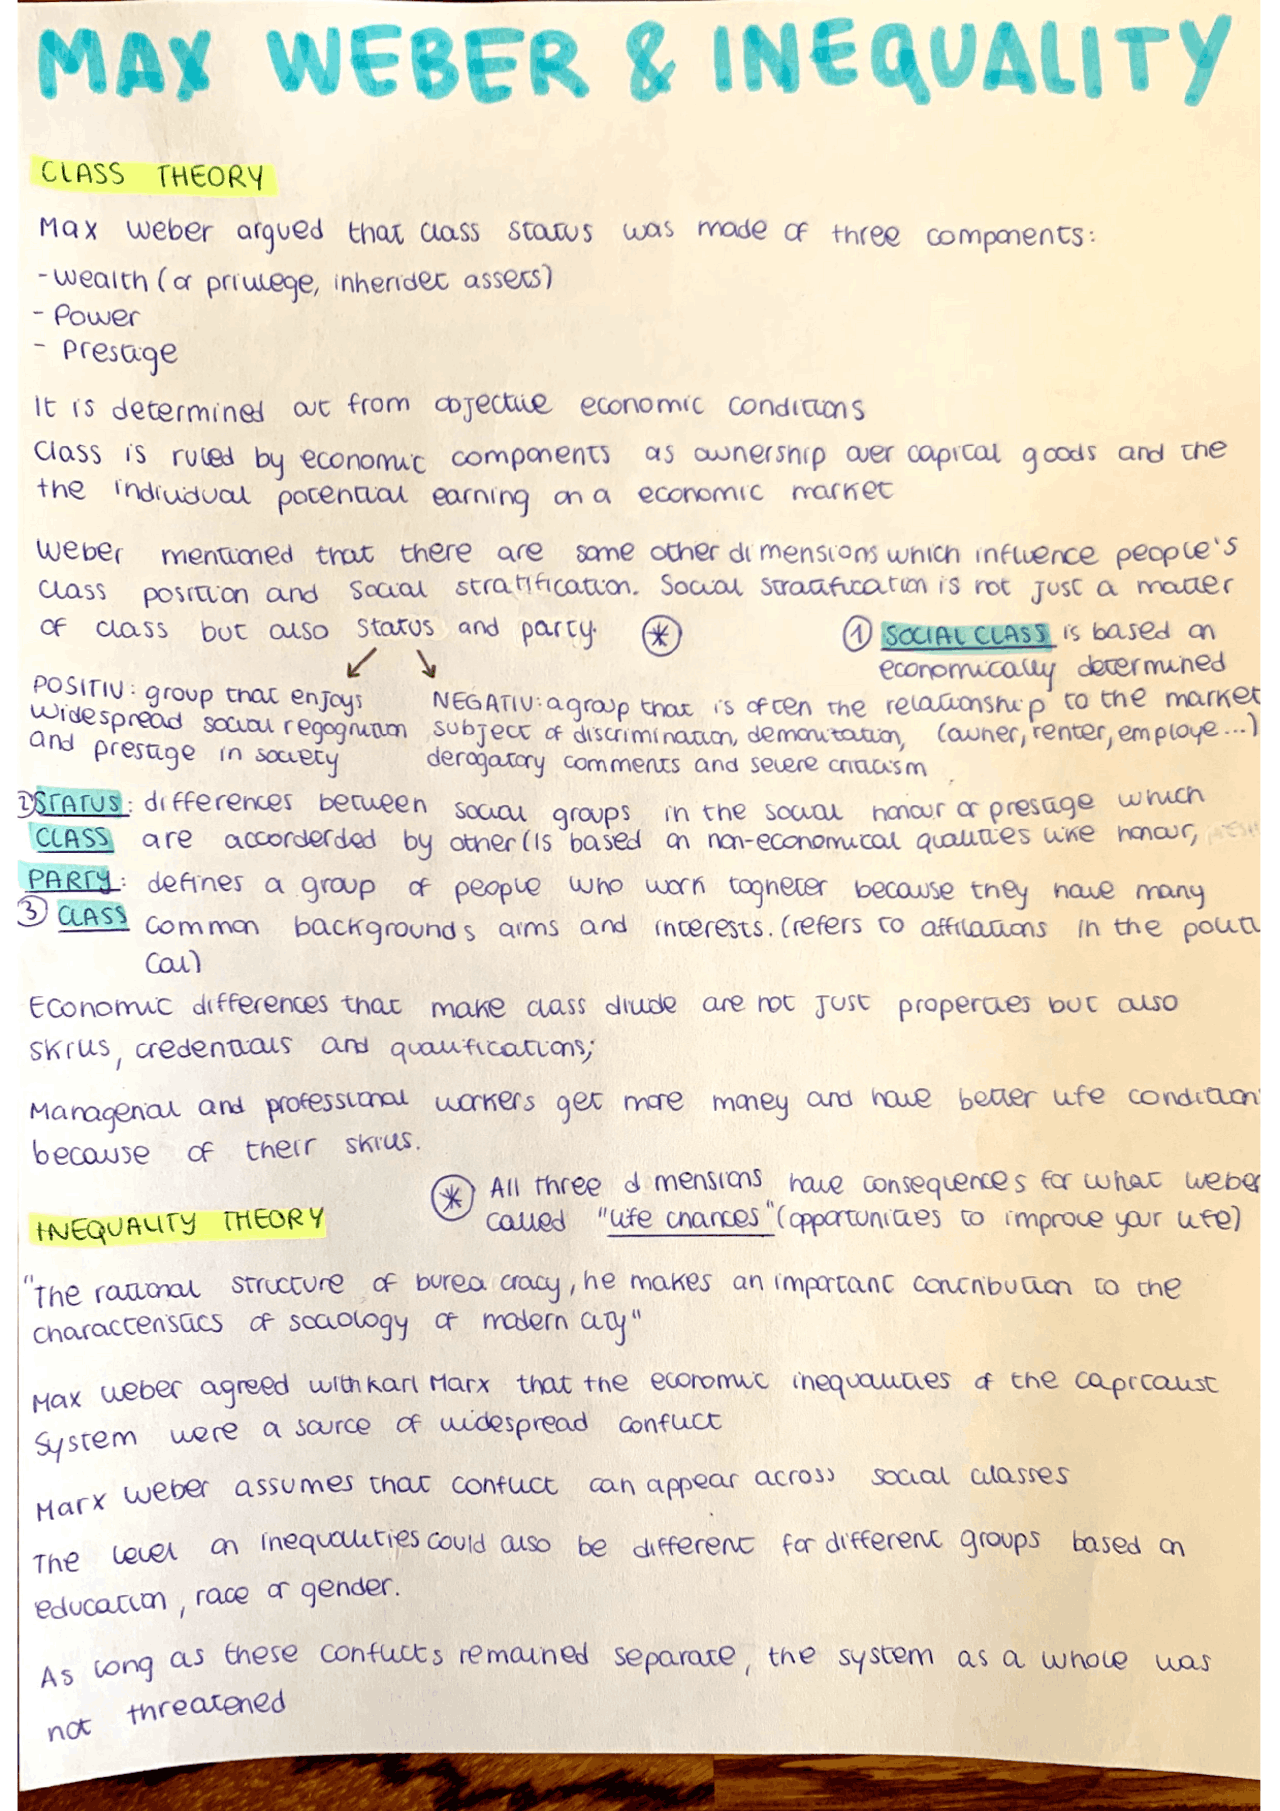 MAX WEBER & INEQUALITY
CLASS THEORY
Max Weber argued that class status was made of three components:
- wealth (or privilege, inheridet assets)
- Power
- Prestige
It is determined out from objective economic conditions
Class is ruled by economic components as ownership over capital goods and the
the individual potential earning on a economic market
Weber mentioned that there are some other dimensions which influence people's
class position and social stratification. Social stratification is not just a matter
of class but also status and party. *
① SOCIAL CLASS is based on
economically determined
relationship to the market
(owner, renter, employe...)
POSITIV: group that enjoys
widespread social regognition
and prestige in society
NEGATIV: a group that is often the
subject of discrimination, demonitation,
derogatory comments and severe criticism
② STATUS: differences between social groups in the social honour or prestige which
CLASS are accorderded by other (is based on non-economical qualities like honour,
PARTY: defines a group of people who work togheter because they have many
③ CLASS common backgrounds aims and interests. (refers to affilations in the politi
cal)
Economic differences that make class divide are not just properties but also
skills, credentials and qualifications;
Managerial and professional workers get more money and have better life condition
because of their skills.
* All three dimensions have consequences for what weber
called "life chances" (opportunities to improve your life)
INEQUALITY THEORY
"The rational structure of bureacracy, he makes an important contribution to the
characteristics of sociology of modern city"
Max Weber agreed with Karl Marx that the economic inequalities of the capitalist
system were a source of widespread conflict
Marx Weber assumes that conflict can appear across social classes
The level on inequalities could also be different for different groups based on
education, race or gender.
As long as these conflicts remained separate, the system as a whole was
not threatened